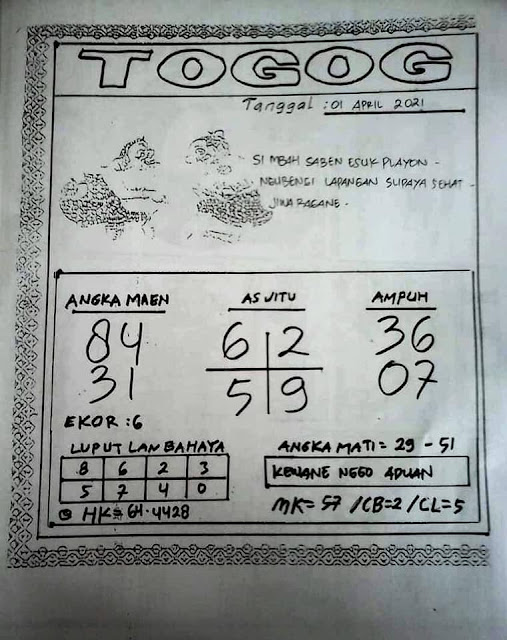 TOGOG
Tanggal : 01 APRIL 2021
SI MBAH SABEN ESUK PLAYON -
NGUBENGI LAPANGAN SUPAYA SEHAT -
JIWA RAGANE -
ANGKA MAEN
AS JITU
AMPUH
84
6 2
36
31
5 9
07
EKOR : 6
LUPUT LAN BAHAYA
ANGKA MATI = 29 - 51
8 6 2 3
KEWANE NGGO ADUAN
5 7 4 0
MK = 57 / CB = 2 / CL = 5
HK = 64.4428